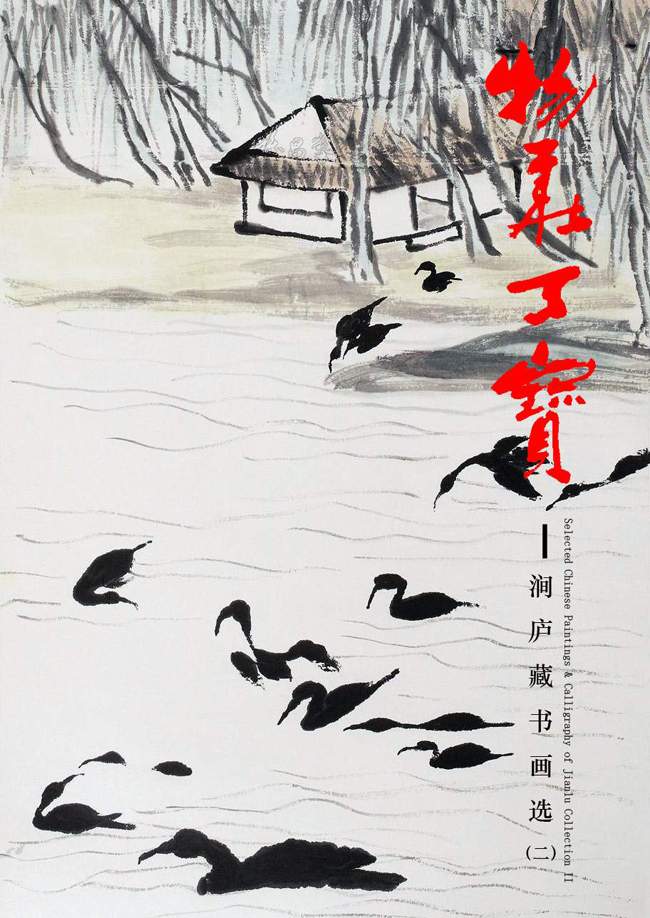 物華天寶
涧庐藏书画选(二)
Selected Chinese Paintings & Calligraphy of Jianlu Collection II